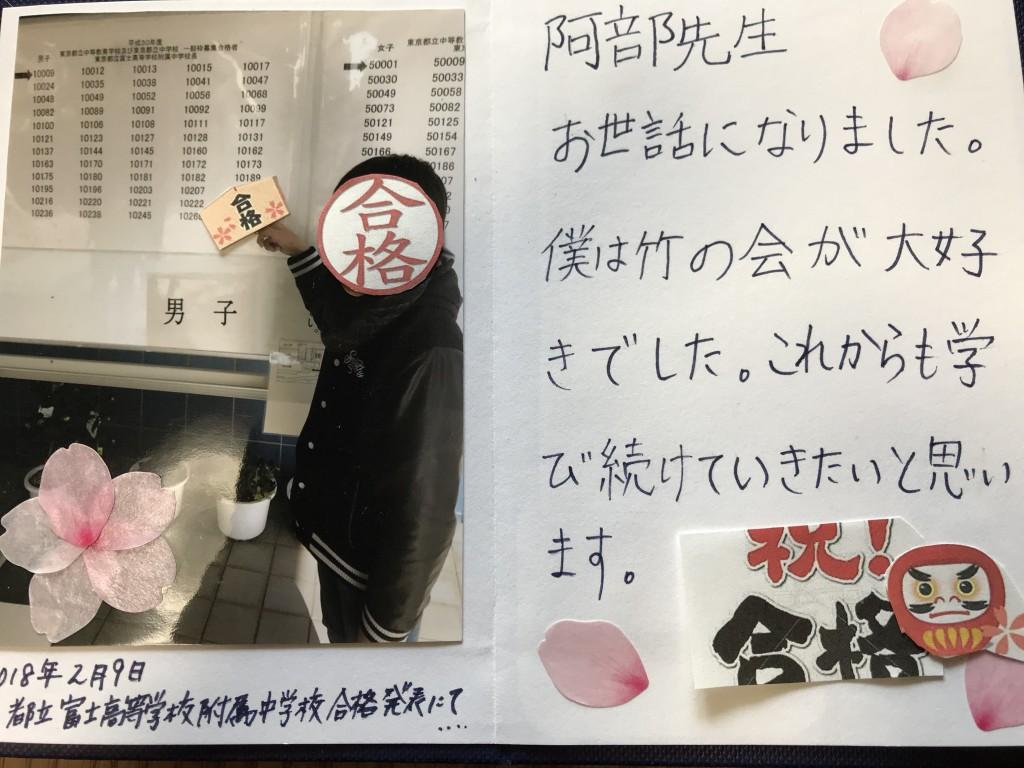 平成30年度
東京都立中等教育学校及び東京都立中学校 一般枠募集合格者
東京都立富士高等学校附属中学校長
男子
10009 10012 10013 10015 10017
10024 10035 10038 10041 10047
10048 10049 10052 10056 10068
10082 10089 10091 10092 10099
10100 10106 10108 10111 10117
10121 10123 10127 10128 10131
10137 10144 10145 10160 10162
10163 10170 10171 10172 10173
10175 10180 10181 10182 10189
10195 10196 10203 10207
10216 10220 10221 10222
10236 10238 10245
女子
東京都立中等
50001 50009
50030 50033
50049 50058
50073 50082
50121 50125
50149 50154
50166 50167
合格
合格
男子
2018年2月9日
都立富士高等学校附属中学校合格発表にて....
阿部先生
お世話になりました。
僕は竹の会が大好
きでした。これからも学
び続けていきたいと思い
ます。
祝!
合格